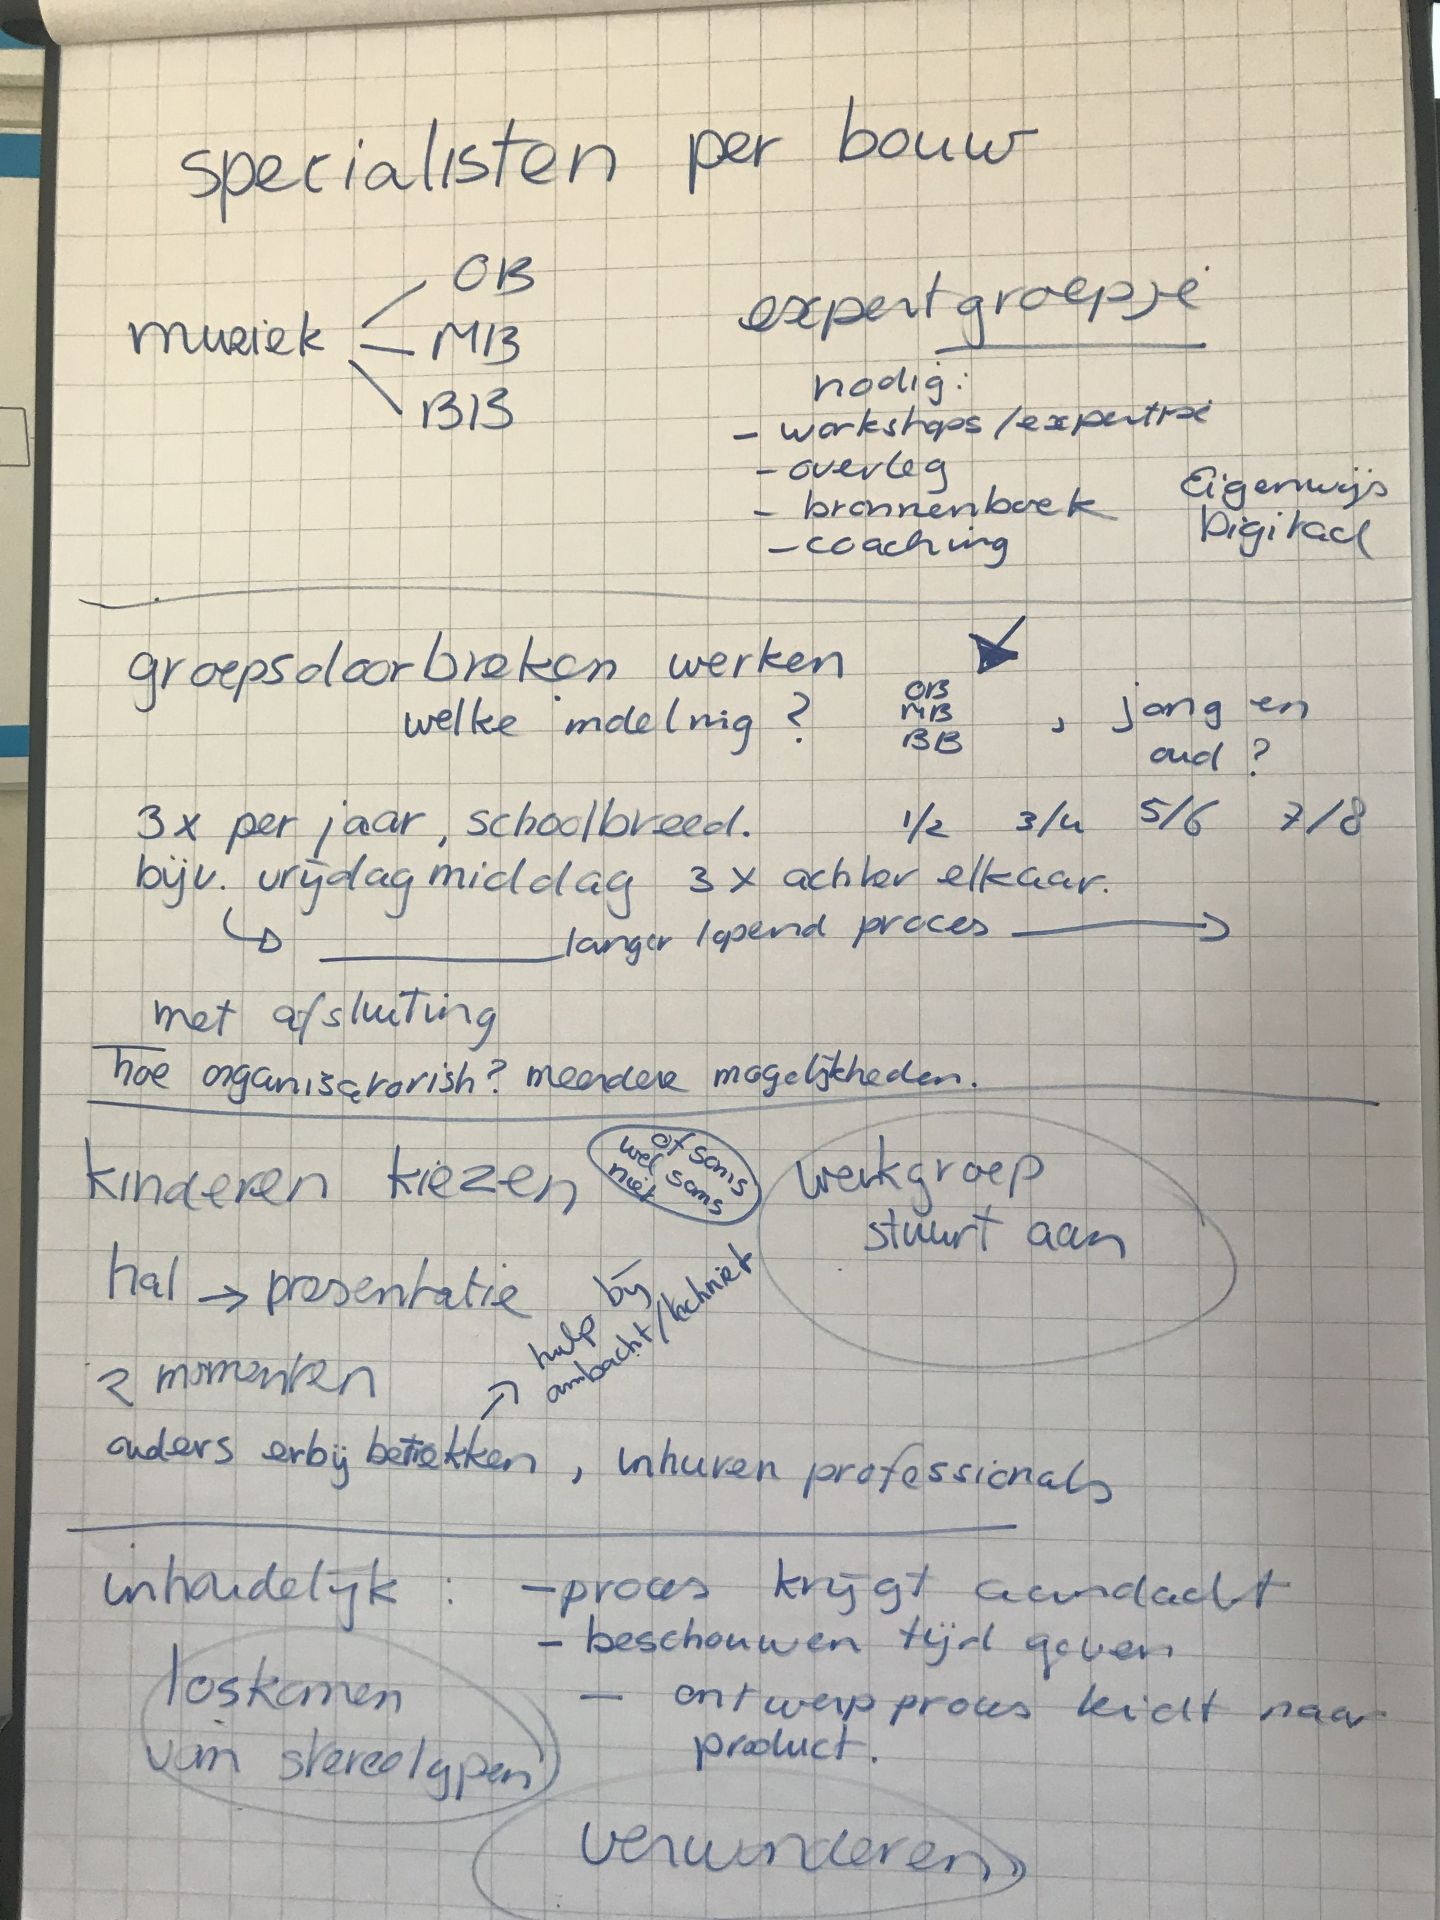 specialisten per bouw
muziek
OB
MB
BB
expertgroepje
nodig:
- workshops/expertise
- overleg
- bronnenboek
- coaching
Eigenwijs
Digitaal
groepsdoorbreken werken
welke indeling?
OB
MB
BB
, jong en
oud?
3x per jaar, schoolbreed.
1/2 3/4 5/6 7/8
bijv. vrijdagmiddag 3x achter elkaar.
langer lopend proces
met afsluiting
hoe organisatorish? meerdere mogelijkheden.
kinderen kiezen
of soms
wel soms
niet
werkgroep
stuurt aan
hal → presentatie
hulp bij
ambacht/techniek
2 momenten
ouders erbij betrekken, inhuren professionals
inhoudelijk:
- proces krijgt aandacht
- beschouwen tijd geven
- ontwerpproces leidt naar
product.
loskomen
van stereotypen
verwonderen